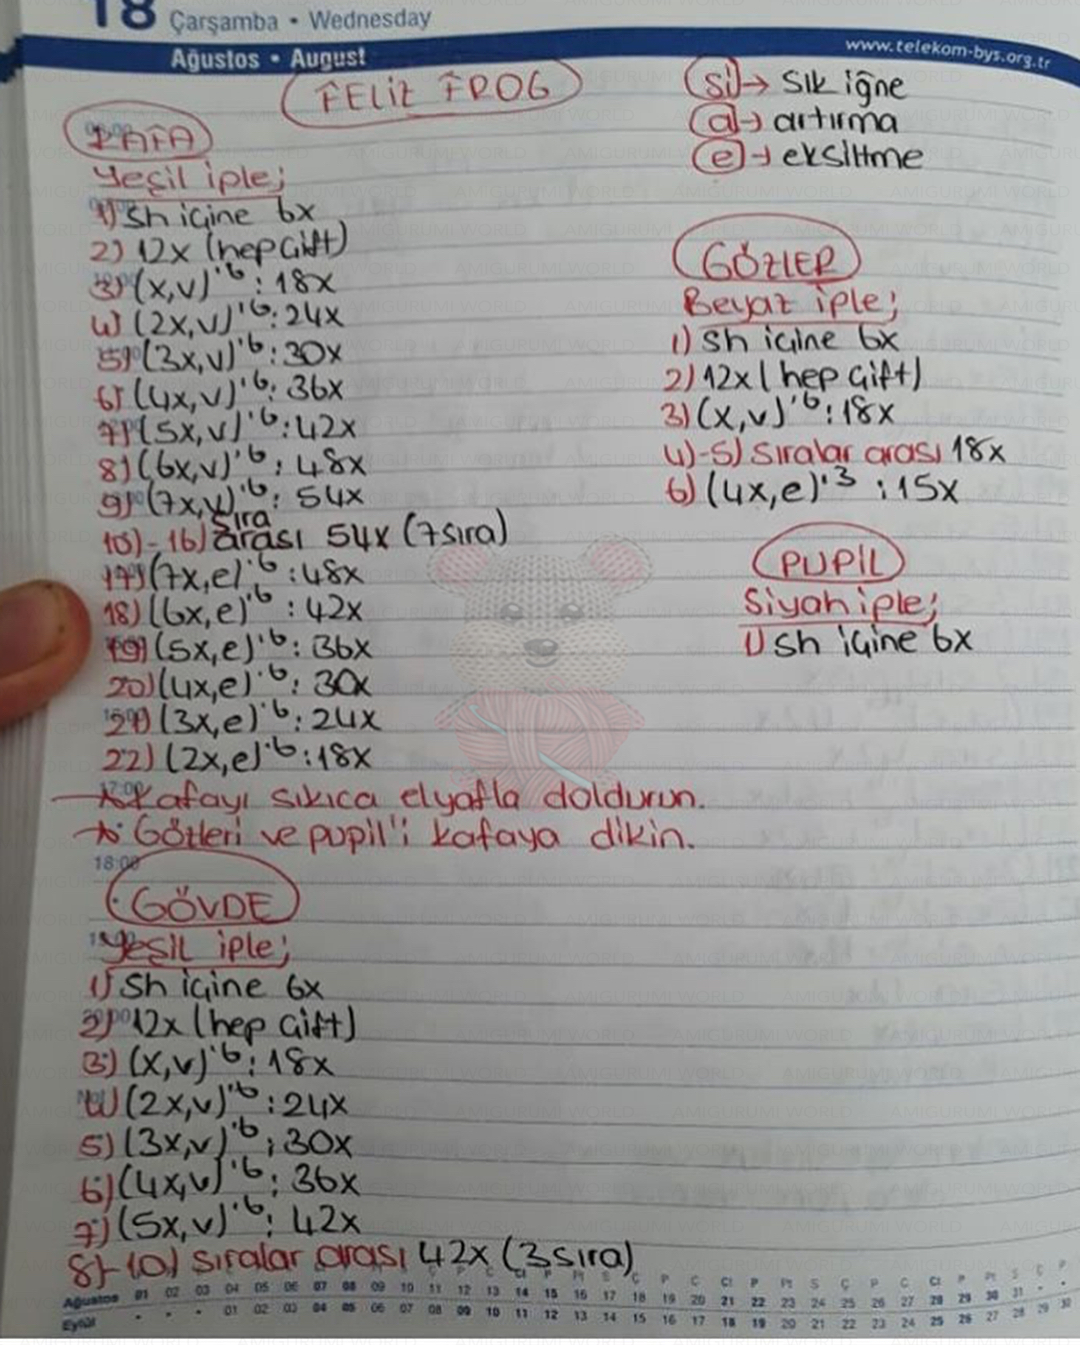 18 Çarşamba • Wednesday
Ağustos • August
www.telekom-bys.org.tr
FELİZ FROG
Si → Sık iğne
a → artırma
e → eksiltme
KAFA
Yeşil iple;
1) Sh içine 6x
2) 12x (hep çift)
3) (x,v)'6 : 18x
4) (2x,v)'6: 24x
5) (3x,v)'6: 30x
6) (4x,v)'6: 36x
7) (5x,v)'6: 42x
8) (6x,v)'6: 48x
9) (7x,v)'6: 54x
10)-16) Sıra arası 54x (7sıra)
17) (7x,e)'6 : 48x
18) (6x,e)'6 : 42x
19) (5x,e)'6: 36x
20) (4x,e)'6: 30x
21) (3x,e)'6: 24x
22) (2x,e)'6: 18x
Kafayı sıkıca elyafla doldurun.
Gözleri ve pupil'i kafaya dikin.
GÖZLER
Beyaz iple;
1) Sh içine 6x
2) 12x (hep çift)
3) (x,v)'6: 18x
4)-5) Sıralar arası 18x
6) (4x,e)'3 : 15x
PUPİL
Siyah iple;
1) Sh içine 6x
18:00
GÖVDE
Yeşil iple;
1) Sh içine 6x
2) 12x (hep çift)
3) (x,v)'6: 18x
4) (2x,v)'6 : 24x
5) (3x,v)'6 ; 30x
6) (4x,v)'6; 36x
7) (5x,v)'6: 42x
8)-10) sıralar arası 42x (3sıra)
Ağustos 01 02 03 04 05 06 07 08 09 10 11 12 13 14 15 16 17 18 19 20 21 22 23 24 25 26 27 28 29 30 31
Eylül 01 02 03 04 05 06 07 08 09 10 11 12 13 14 15 16 17 18 19 20 21 22 23 24 25 26 27 28 29 30